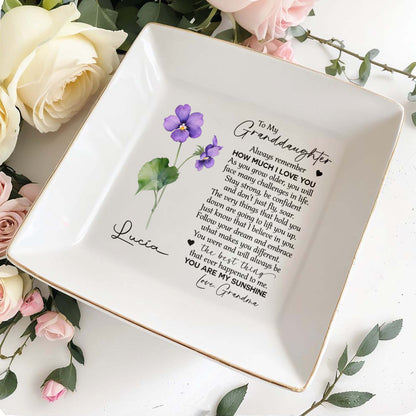 To My
Granddaughter
Always remember
HOW MUCH I LOVE YOU
As you grow older, you will
face many challenges in life.
Stay strong, be confident
and don't just fly, soar
The very things that hold you
down are going to lift you up.
Just know that I believe in you.
Follow your dream and embrace
what makes you different.
You were and will always be
the best thing
that ever happened to me.
YOU ARE MY SUNSHINE
Love Grandma
Lucia